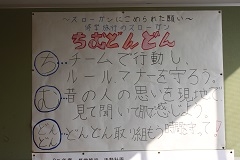 ～スローガンにこめられた願い～
修学旅行のスローガン
ちむどんどん
ち…チームで行動し、
ルール、マナーを守ろう。
む…昔の人の思いを現地で
見て聞いて肌で感じよう。
どんどん…どんどん取り組もう